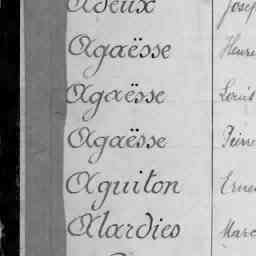 Adeux Josep
Agaësse Henri
Agaësse Louis
Agaësse Pierre
Aguiton Ernes
Alardies Marc